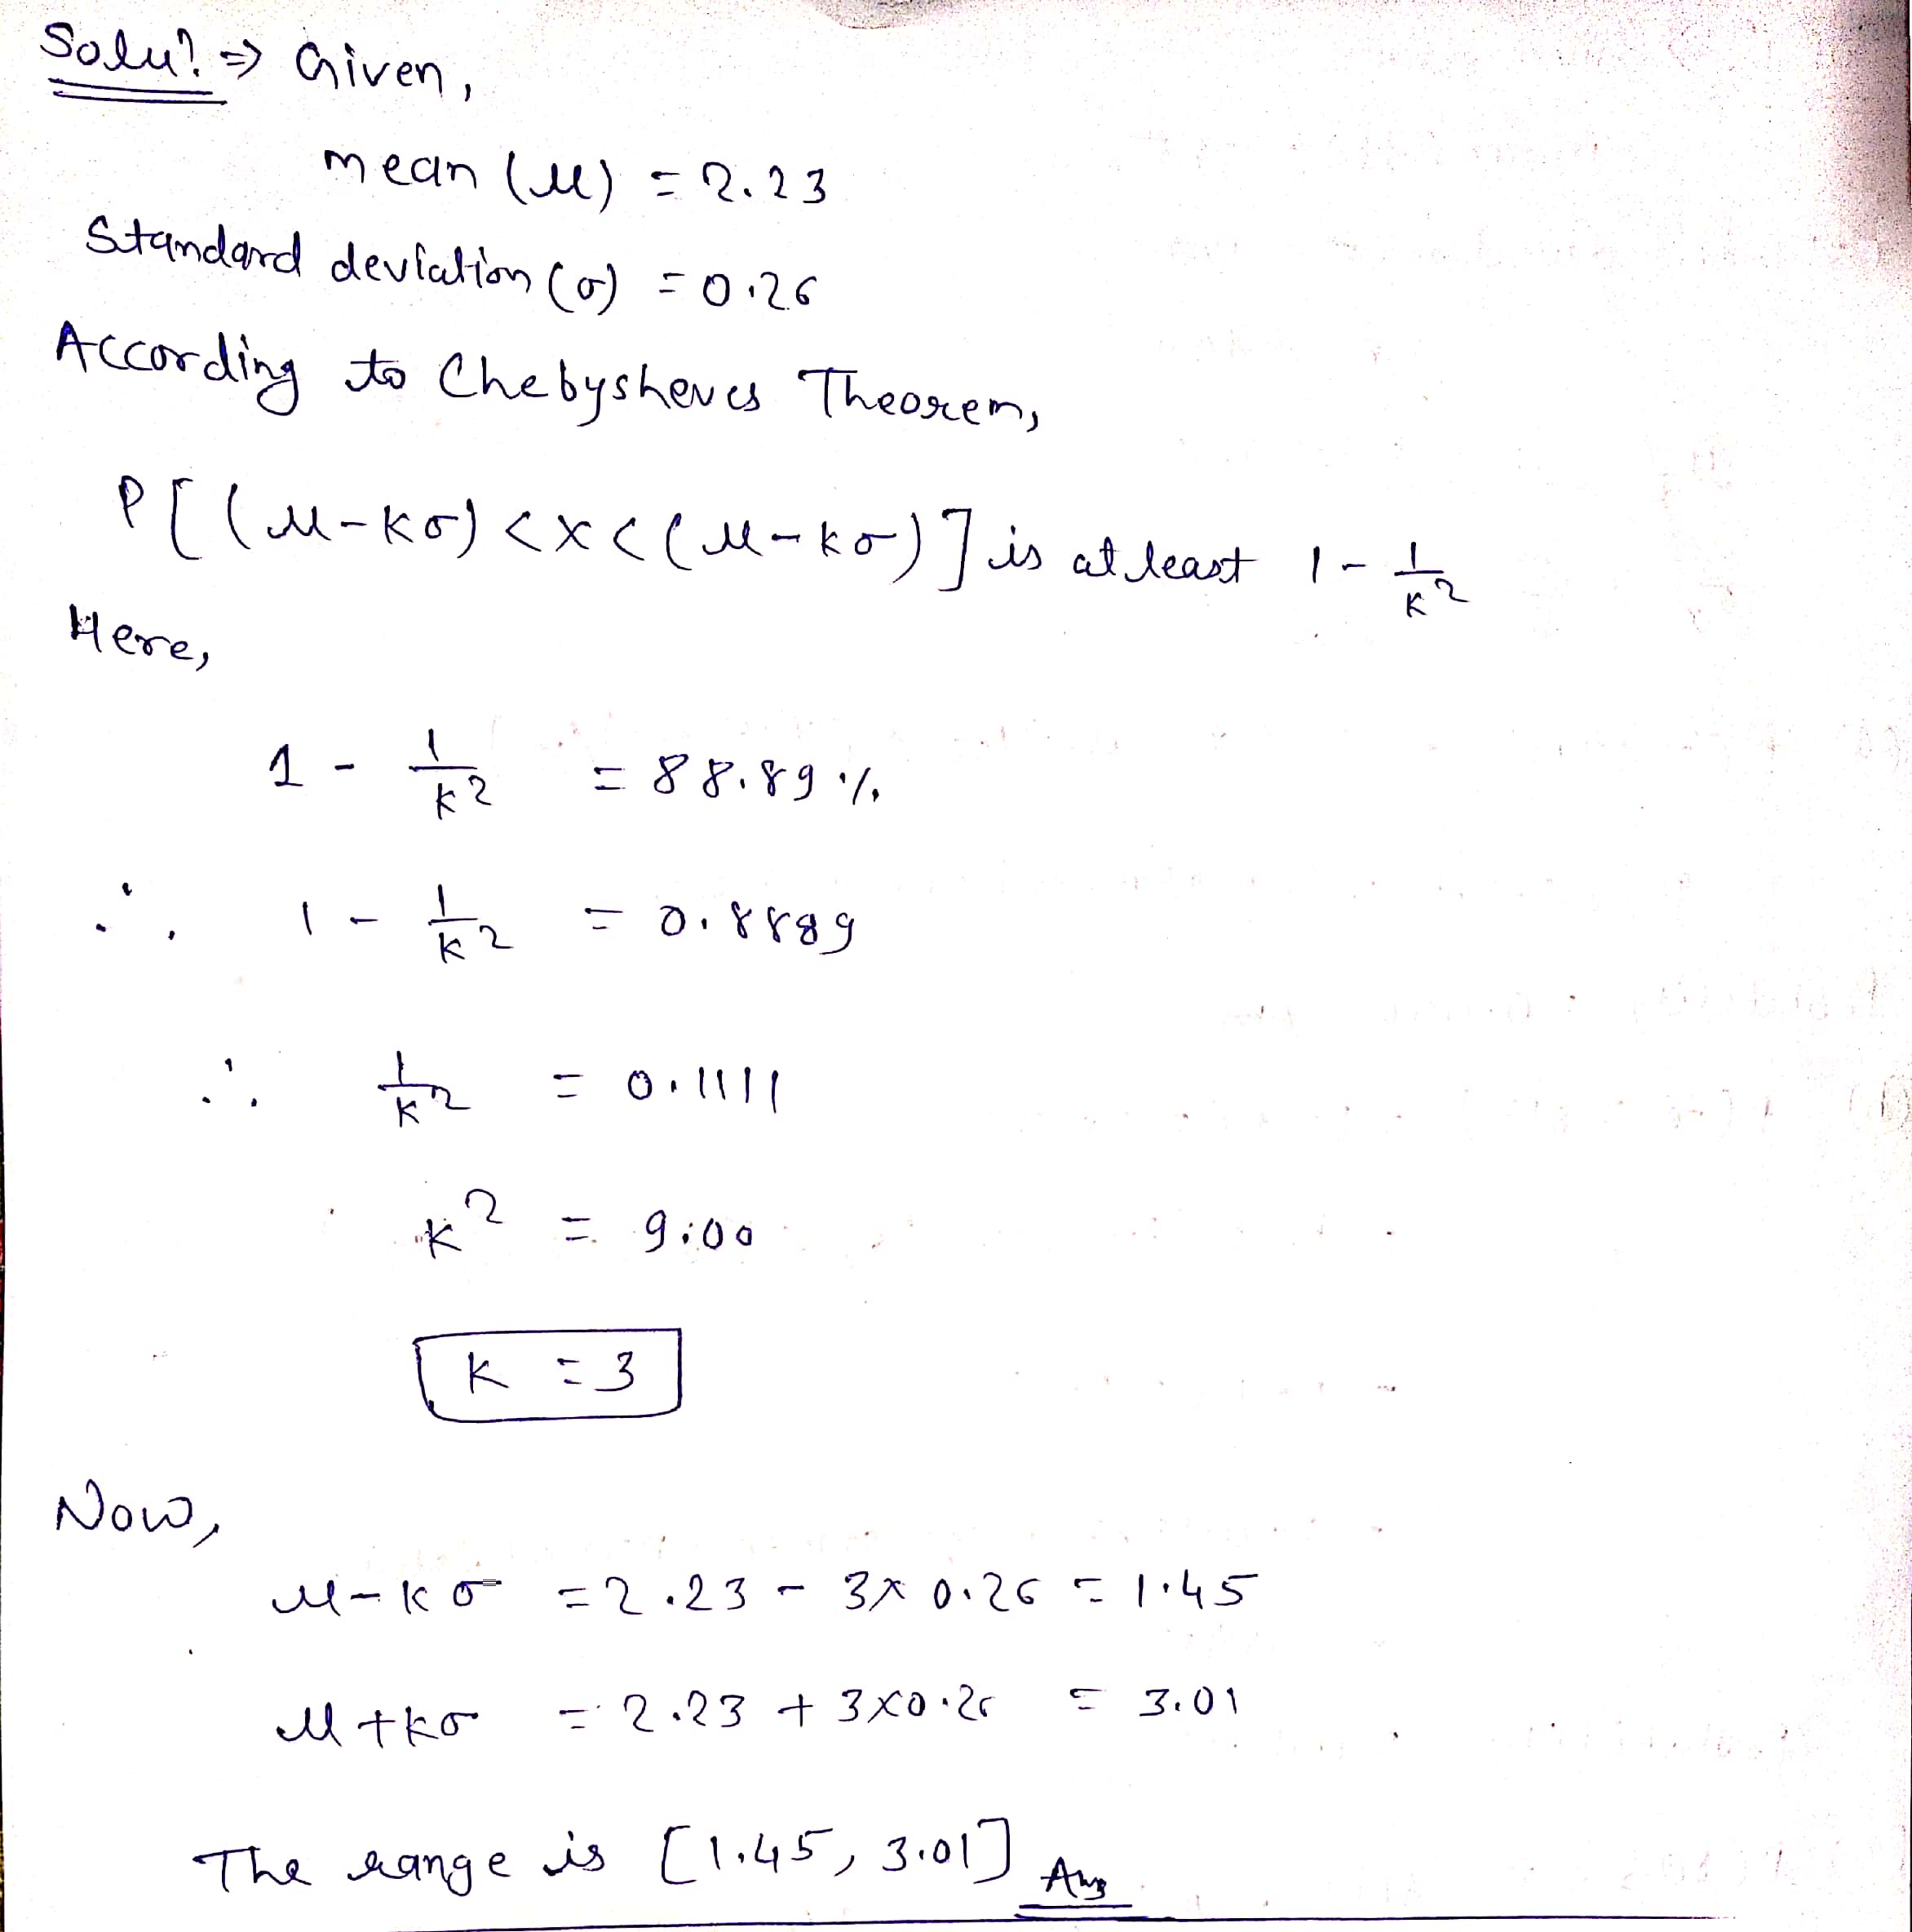 Solun. ⇒ Given,
mean (μ) = 2.23
Standard deviation (σ) = 0.26
According to Chebysheves Theorem,
P[(μ-kσ) < x < (μ-kσ)] is at least 1 - 1/k²
Here,
1 - 1/k² = 88.89 %
∴ 1 - 1/k² = 0.8889
∴ 1/k² = 0.1111
k² = 9.00
k = 3
Now,
μ-kσ = 2.23 - 3×0.26 = 1.45
μ+kσ = 2.23 + 3×0.26 = 3.01
The range is [1.45, 3.01] Ans